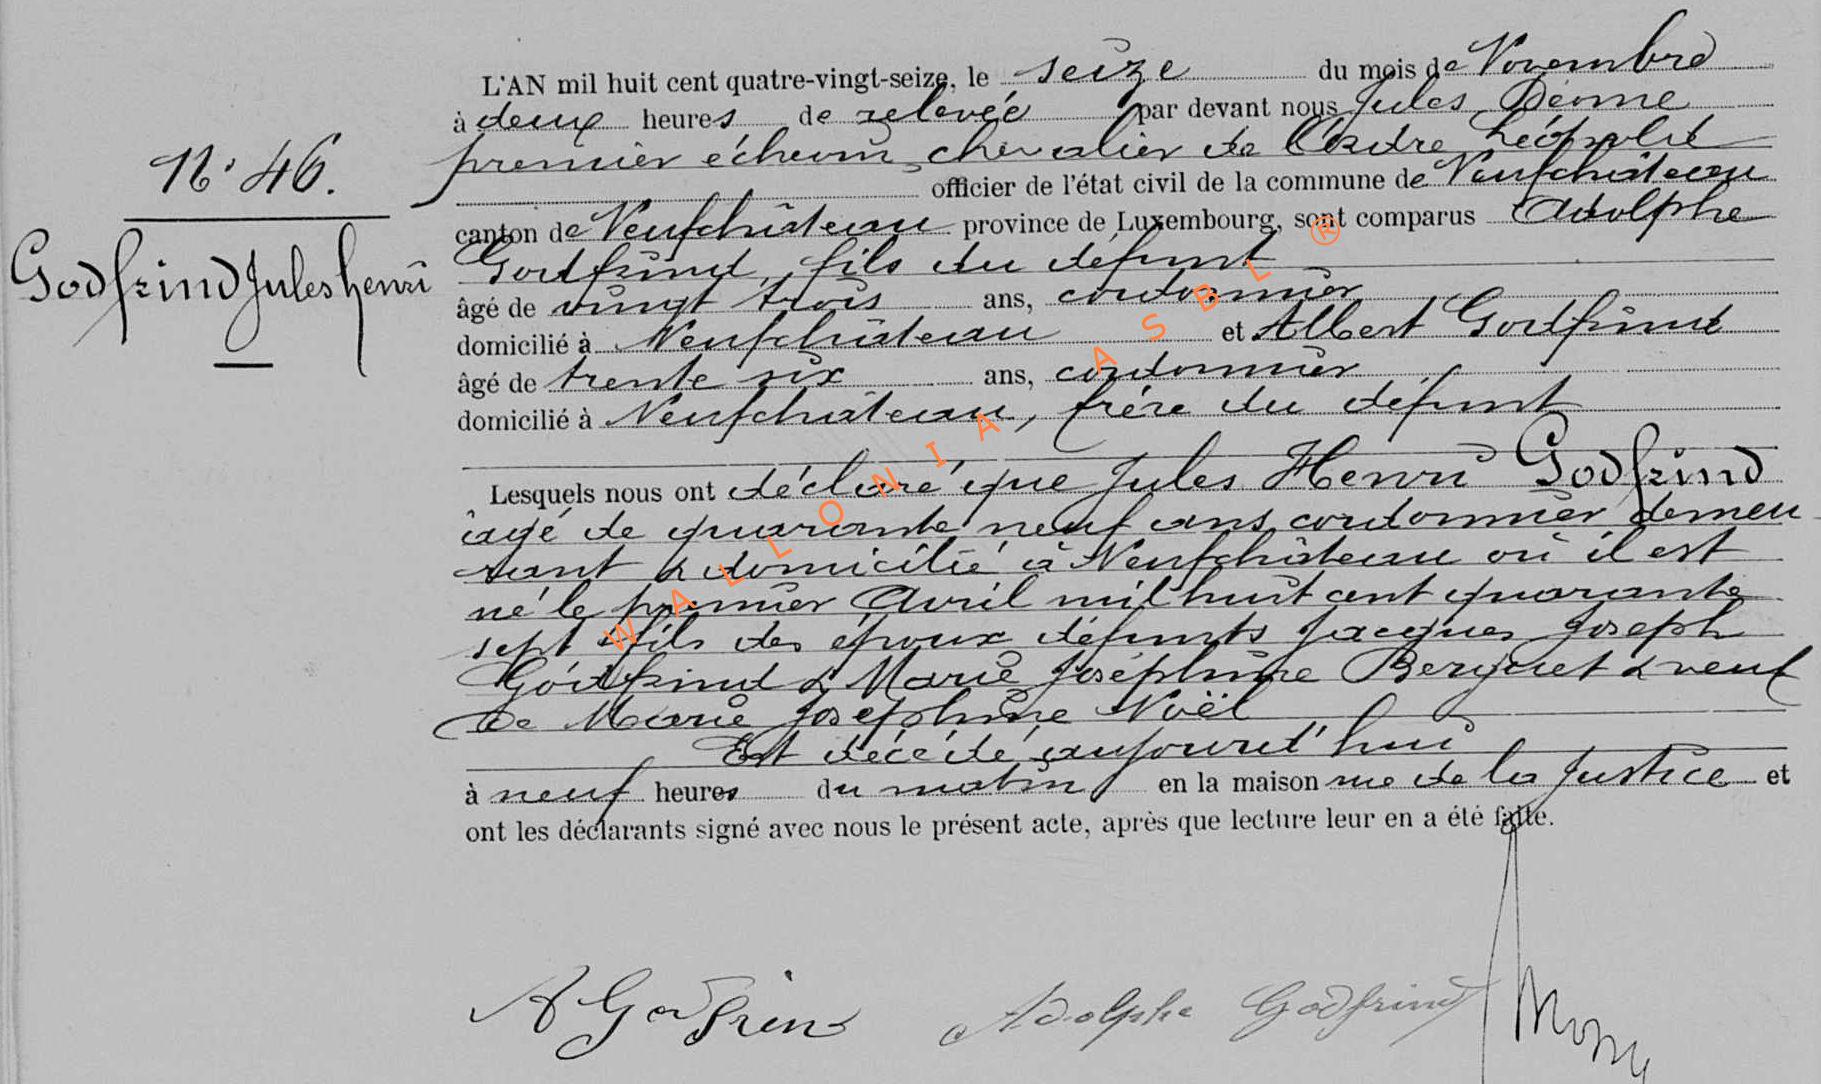 N° 46.
Godfrind Jules henri
L'AN mil huit cent quatre-vingt-seize, le seize du mois de Novembre
à deux heures de relevée par devant nous Jules
premier échevin, chevalier de l'Ordre Léopold
officier de l'état civil de la commune de Neufchâteau
canton de Neufchâteau province de Luxembourg, sont comparus Adolphe
Godfrind, fils du défunt
âgé de vingt trois ans, cordonnier
domicilié à Neufchâteau et Albert Godfrind
âgé de trente six ans, cordonnier
domicilié à Neufchâteau, frère du défunt
Lesquels nous ont déclaré que Jules Henri Godfrind
âgé de quarante neuf ans, cordonnier demeu
rant & domicilié à Neufchâteau où il est
né le premier Avril mil huit cent quarante
sept & fils des époux défunts Jacques Joseph
Godfrind & Marie Joséphine & veuf
de Marie Joséphine Noël
Est décédé aujourd'hui
à neuf heures du matin en la maison rue de la Justice et
ont les déclarants signé avec nous le présent acte, après que lecture leur en a été faite.
A Godfrin
Adolphe Godfrind
WALLONIA ASBL ®